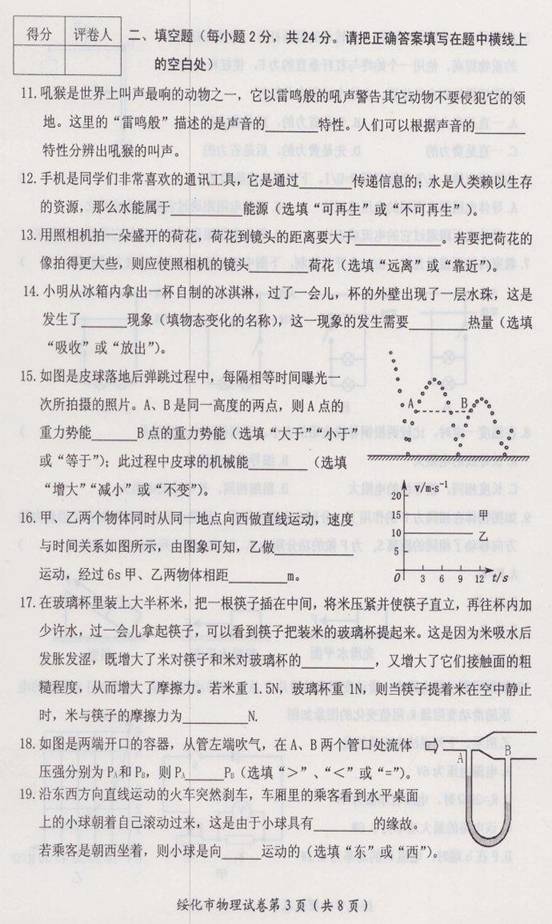 得分 评卷人
二、填空题（每小题2分，共24分。请把正确答案填写在题中横线上
的空白处）
11.吼猴是世界上叫声最响的动物之一，它以雷鸣般的吼声警告其它动物不要侵犯它的领
地。这里的“雷鸣般”描述的是声音的______特性。人们可以根据声音的______
特性分辨出吼猴的叫声。
12.手机是同学们非常喜欢的通讯工具，它是通过______传递信息的；水是人类赖以生存
的资源，那么水能属于________能源（选填“可再生”或“不可再生”）。
13.用照相机拍一朵盛开的荷花，荷花到镜头的距离要大于________。若要把荷花的
像拍得更大些，则应使照相机的镜头______荷花（选填“远离”或“靠近”）。
14.小明从冰箱内拿出一杯自制的冰淇淋，过了一会儿，杯的外壁出现了一层水珠，这是
发生了______现象（填物态变化的名称），这一现象的发生需要______热量（选填
“吸收”或“放出”）。
15.如图是皮球落地后弹跳过程中，每隔相等时间曝光一
次所拍摄的照片。A、B是同一高度的两点，则A点的
重力势能______B点的重力势能（选填“大于”“小于”
或“等于”）；此过程中皮球的机械能______（选填
“增大”“减小”或“不变”）。
A B
16.甲、乙两个物体同时从同一地点向西做直线运动，速度
与时间关系如图所示，由图象可知，乙做________
运动，经过6s甲、乙两物体相距________m。
v/m·s⁻¹
20
15 甲
10 乙
5
0 3 6 9 12 t/s
17.在玻璃杯里装上大半杯米，把一根筷子插在中间，将米压紧并使筷子直立，再往杯内加
少许水，过一会儿拿起筷子，可以看到筷子把装米的玻璃杯提起来。这是因为米吸水后
发胀发涩，既增大了米对筷子和米对玻璃杯的________，又增大了它们接触面的粗
糙程度，从而增大了摩擦力。若米重1.5N，玻璃杯重1N，则当筷子提着米在空中静止
时，米与筷子的摩擦力为________N.
18.如图是两端开口的容器，从管左端吹气，在A、B两个管口处流体
压强分别为PA和PB，则PA______PB（选填“>”、“<”或“=”）。
A B
19.沿东西方向直线运动的火车突然刹车，车厢里的乘客看到水平桌面
上的小球朝着自己滚动过来，这是由于小球具有________的缘故。
若乘客是朝西坐着，则小球是向______运动的（选填“东”或“西”）。
绥化市物理试卷第3页（共8页）